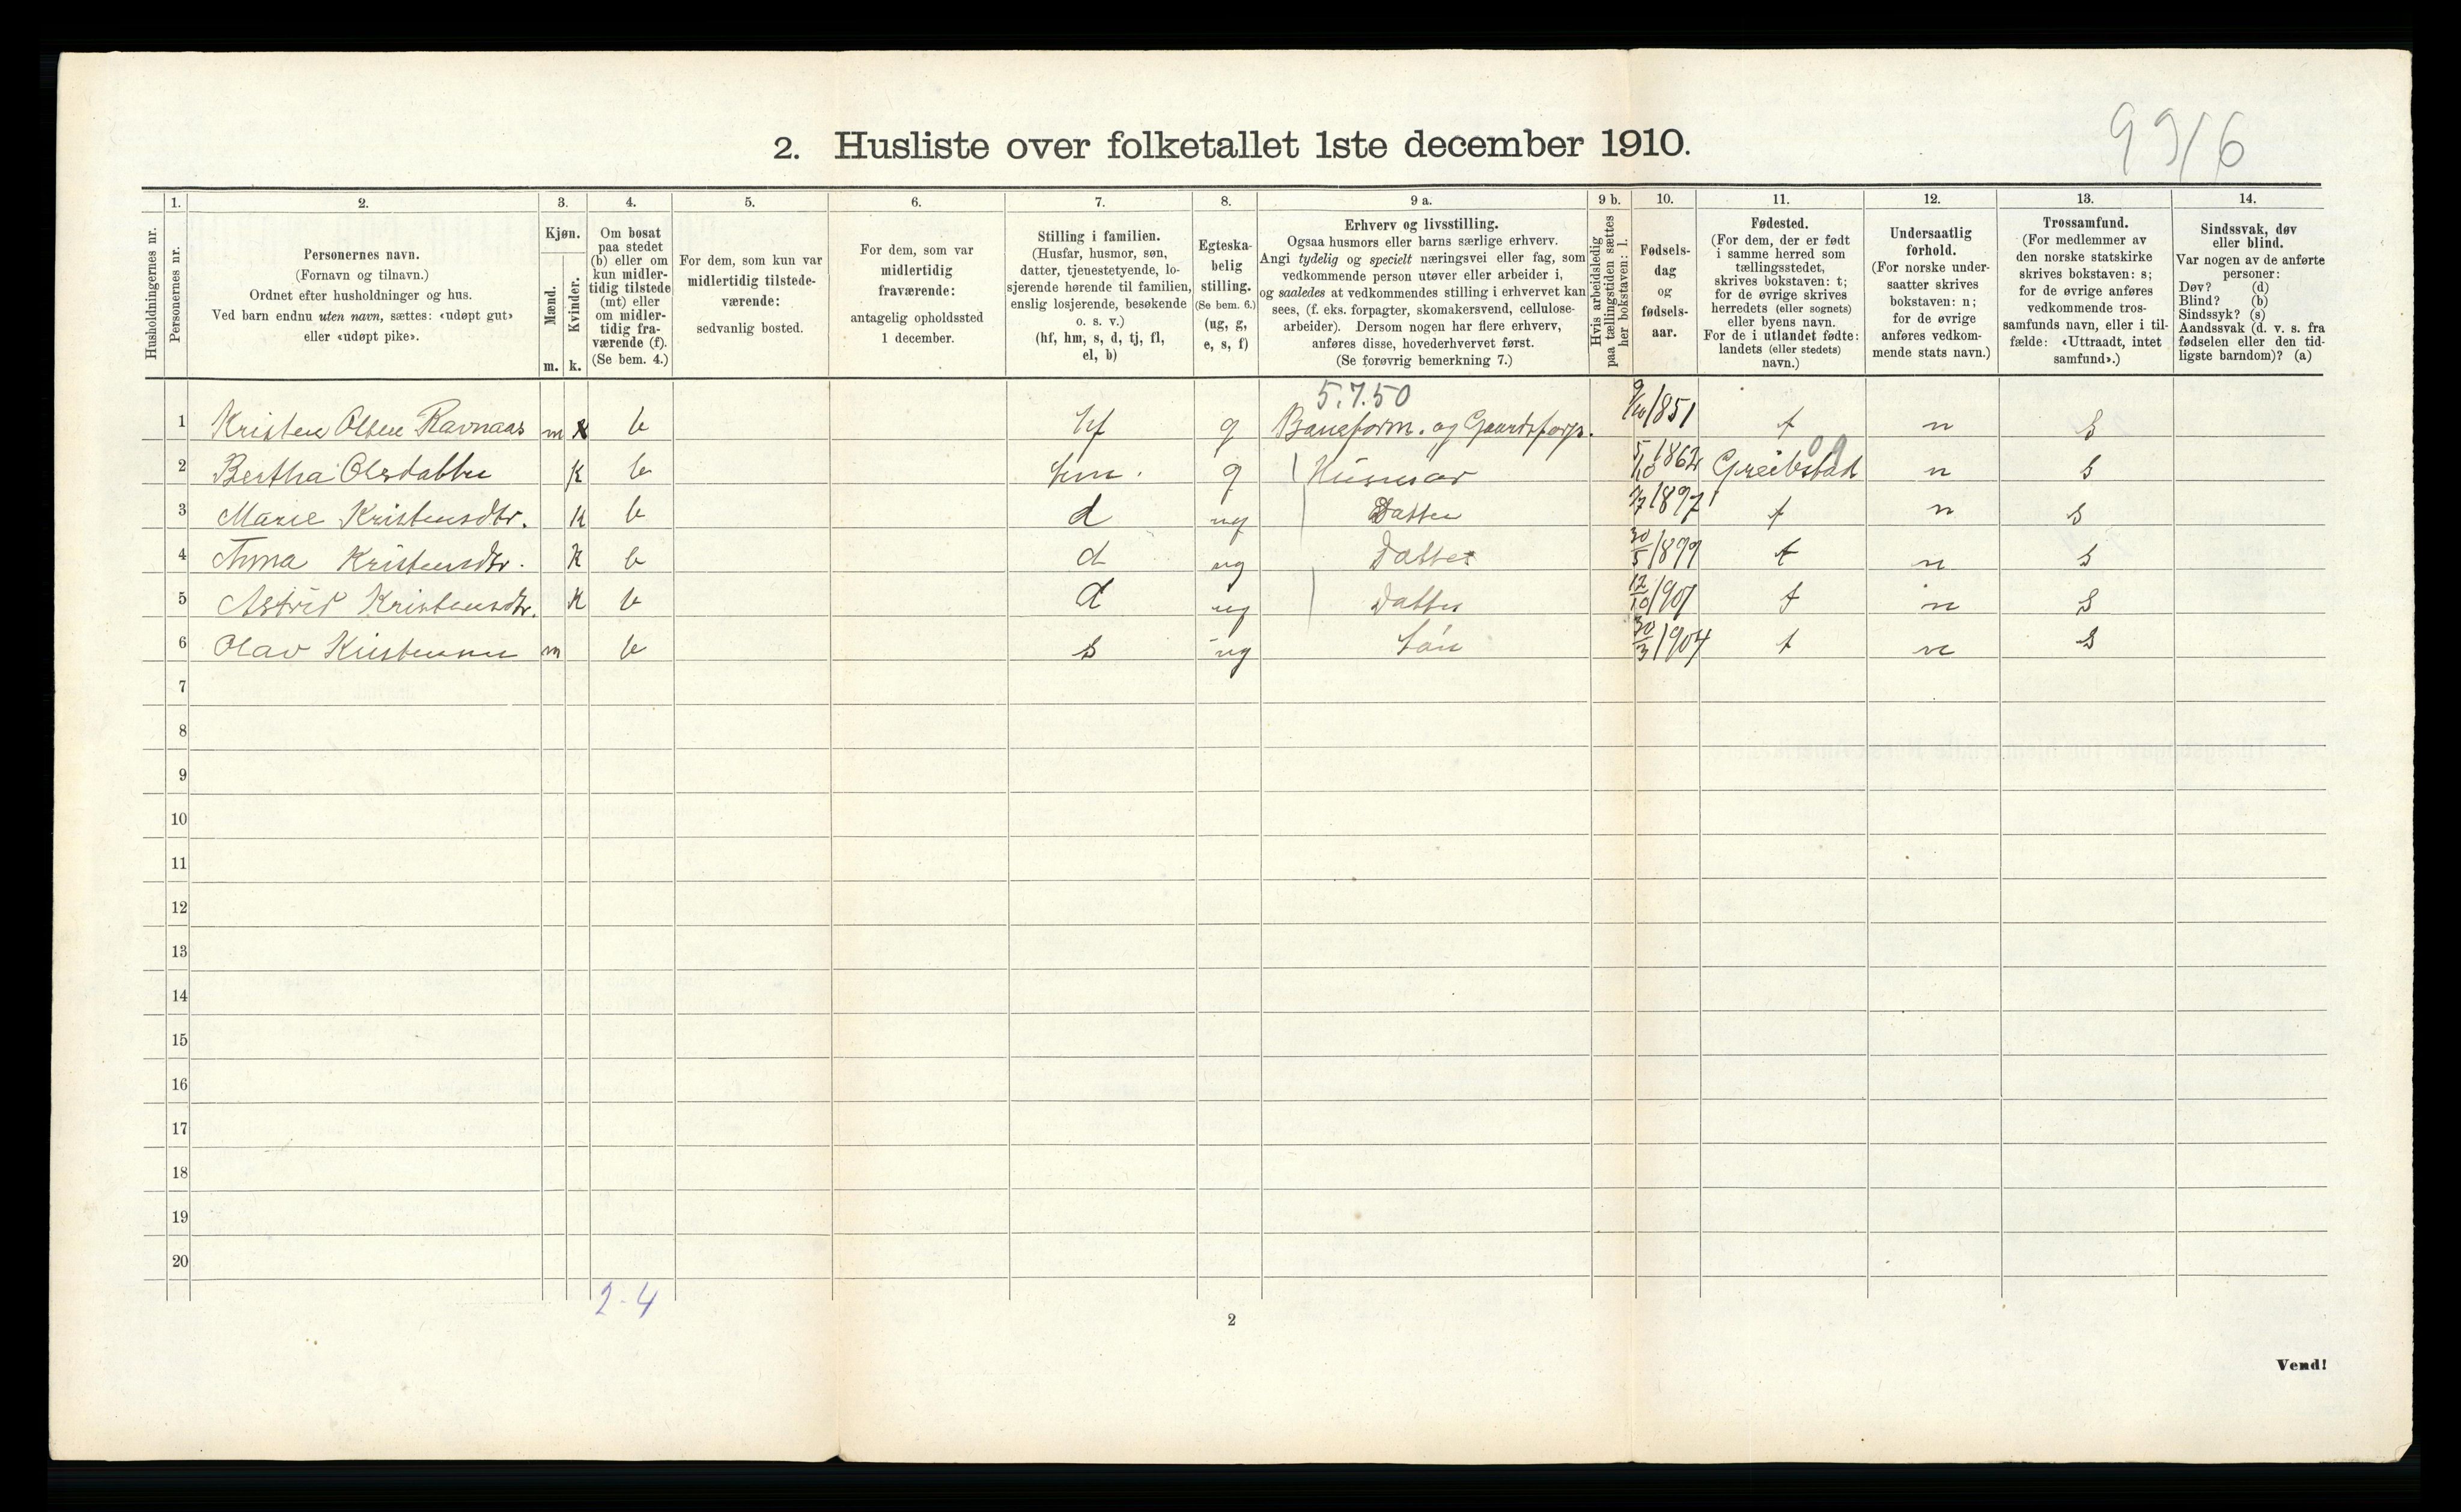 9916
2. Husliste over folketallet 1ste december 1910.
1. 2. 3. 4. 5. 6. 7. 8. 9 a. 9 b. 10. 11. 12. 13. 14.
Husholdningernes nr.
Personernes nr.
Personernes navn.
(Fornavn og tilnavn.)
Ordnet efter husholdninger og hus.
Ved barn endnu uten navn, sættes: «udøpt gut»
eller «udøpt pike».
Kjøn.
Mænd.
Kvinder.
m. k.
Om bosat
paa stedet
(b) eller om
kun midler-
tidig tilstede
(mt) eller
om midler-
tidig fra-
værende (f).
(Se bem. 4.)
For dem, som kun var
midlertidig tilstede-
værende:
sedvanlig bosted.
For dem, som var
midlertidig
fraværende:
antagelig opholdssted
1 december.
Stilling i familien.
(Husfar, husmor, søn,
datter, tjenestetyende, lo-
sjerende hørende til familien,
enslig losjerende, besøkende
o. s. v.)
(hf, hm, s, d, tj, fl,
el, b)
Egteska-
belig
stilling.
(Se bem. 6.)
(ug, g,
e, s, f)
Erhverv og livsstilling.
Ogsaa husmors eller barns særlige erhverv.
Angi tydelig og specielt næringsvei eller fag, som
vedkommende person utøver eller arbeider i,
og saaledes at vedkommendes stilling i erhvervet kan
sees, (f. eks. forpagter, skomakersvend, cellulose-
arbeider). Dersom nogen har flere erhverv,
anføres disse, hovederhvervet først.
(Se forøvrig bemerkning 7.)
Hvis arbeidsledig
paa tællingstiden sættes
her bokstaven: l.
Fødsels-
dag
og
fødsels-
aar.
Fødested.
(For dem, der er født
i samme herred som
tællingsstedet,
skrives bokstaven: t;
for de øvrige skrives
herredets (eller sognets)
eller byens navn.
For de i utlandet fødte:
landets (eller stedets)
navn.)
Undersaatlig
forhold.
(For norske under-
saatter skrives
bokstaven: n;
for de øvrige
anføres vedkom-
mende stats navn.)
Trossamfund.
(For medlemmer av
den norske statskirke
skrives bokstaven: s;
for de øvrige anføres
vedkommende tros-
samfunds navn, eller i til-
fælde: «Uttraadt, intet
samfund».)
Sindssvak, døv
eller blind.
Var nogen av de anførte
personer:
Døv? (d)
Blind? (b)
Sindssyk? (s)
Aandssvak (d. v. s. fra
fødselen eller den tid-
ligste barndom)? (a)
5.7.50
1 Kristen Olsen Ravnaas m b hf g Baneform. og Gaardsforp. 9/10 1851 t n s
09
2 Bertha Olsdatter k b hm. g Husmor 5/10 1862 Greibstad n s
3 Marie Kristensdtr. k b d ug Datter 1897 t n s
4 Anna Kristensdtr. k b d ug Datter 30/5 1899 t n s
5 Astrid Kristensdtr. k b d ug Datter 12/10 1901 t n s
6 Olav Kristensen m b s ug Søn 30/3 1904 t n s
7
8
9
10
11
12
13
14
15
16
17
18
19
20
2-4
2
Vend!